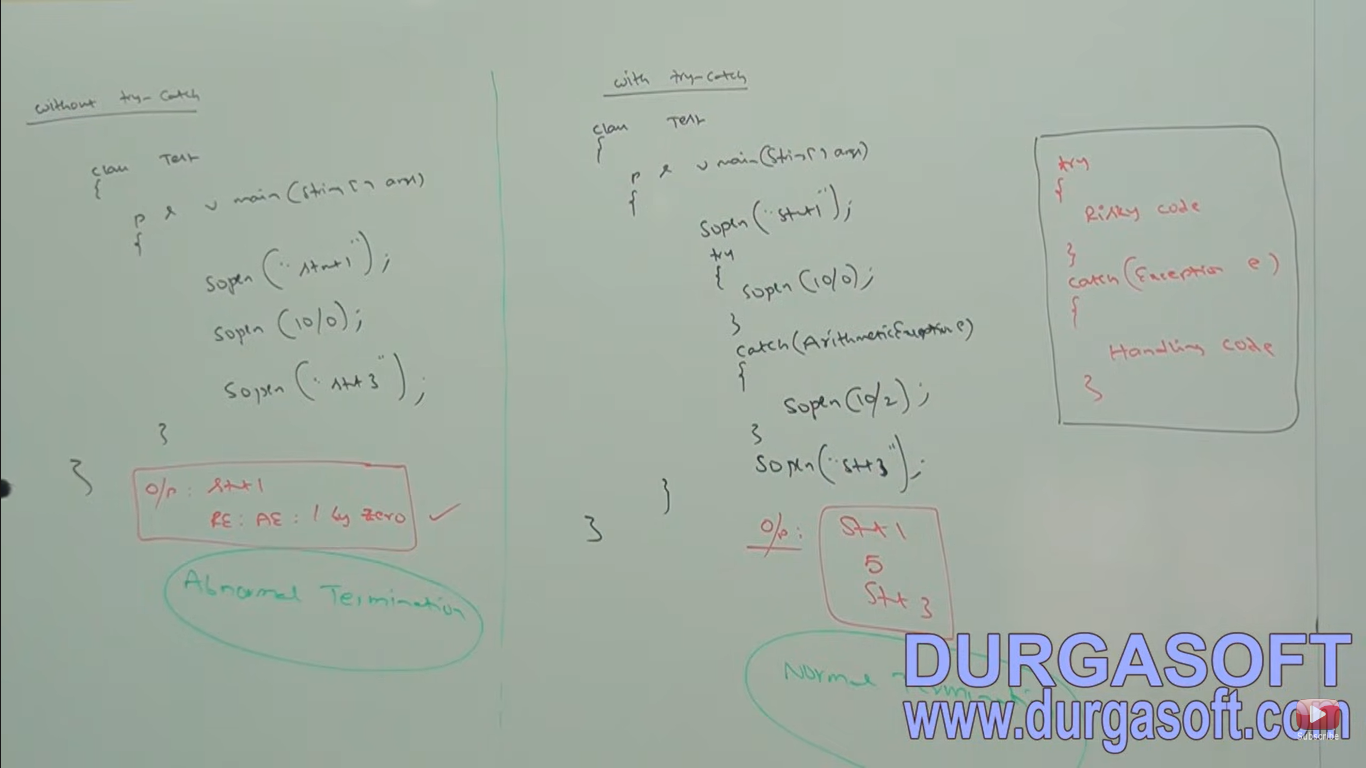 without try-catch
class Test
{
p s v main(String[] args)
{
sopln("stmt1");
sopln(10/0);
sopln("stmt3");
}
}
o/p: stmt1
RE: AE: / by zero
Abnormal Termination
with try-catch
class Test
{
p s v main(String[] args)
{
sopln("stmt1");
try
{
sopln(10/0);
}
catch(ArithmeticException e)
{
sopln(10/2);
}
sopln("stmt3");
}
}
o/p: stmt1
5
stmt3
Normal Termination
try
{
Risky code
}
catch(Exception e)
{
Handling code
}
DURGASOFT
www.durgasoft.com
Subscribe